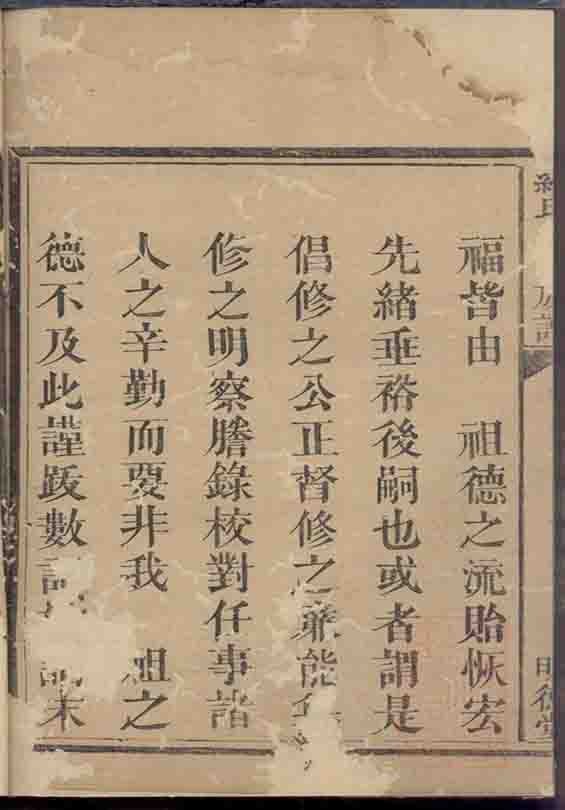 氏 族譜 明德堂
福皆由 祖德之流貽恢宏
先緒垂裕後嗣也或者謂是
倡修之公正督修之兼能
修之明察謄錄校對任事諸
人之辛勤而要非我 祖之
德不及此謹跋數 末